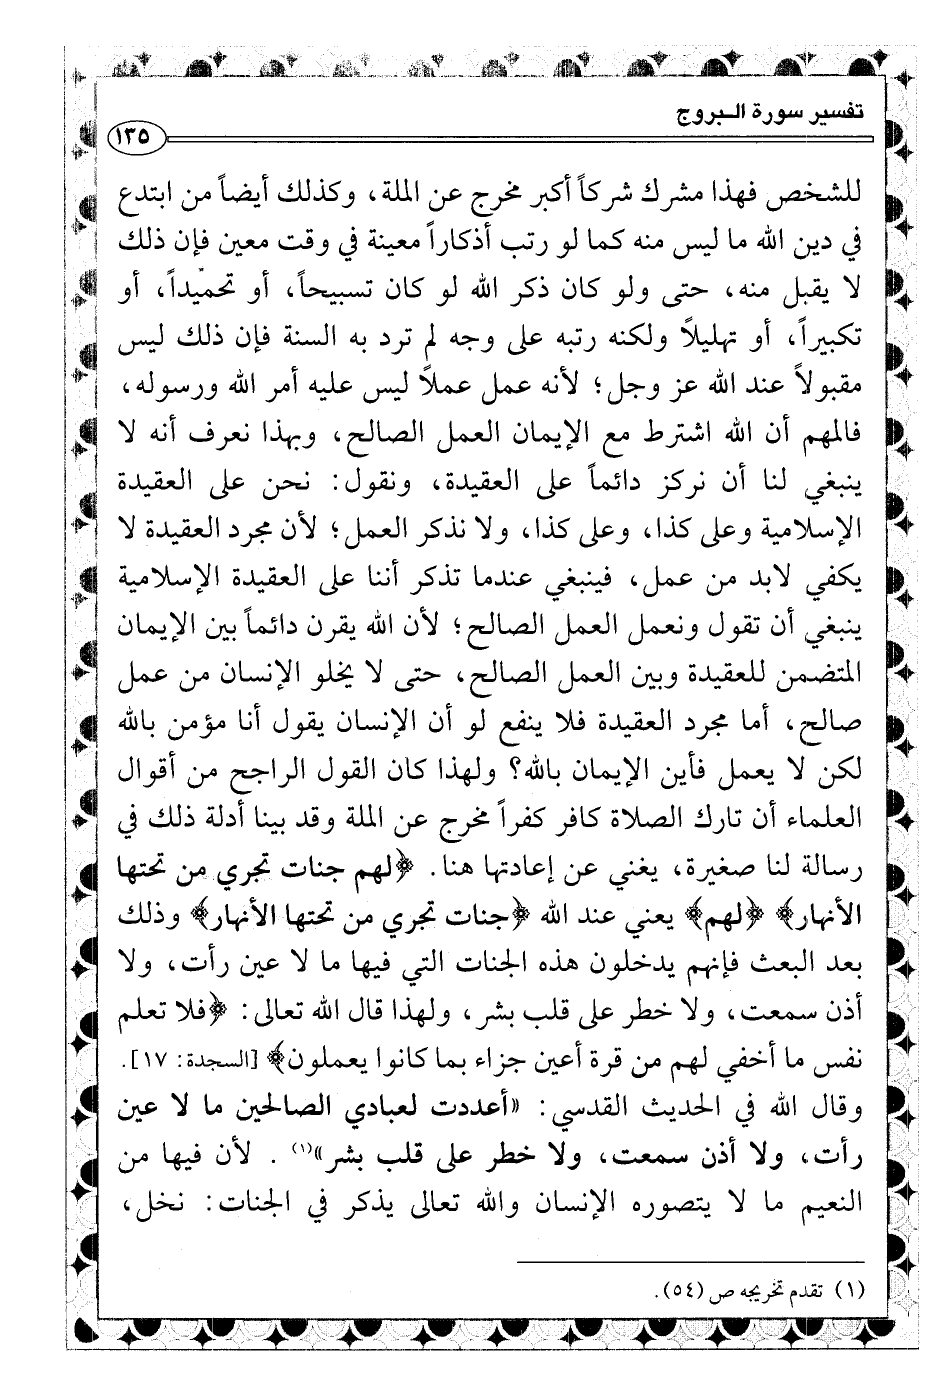 تفسير سورة البروج
١٣٥
للشخص فهذا مشرك شركاً أكبر مخرج عن الملة، وكذلك أيضاً من ابتدع
في دين الله ما ليس منه كما لو رتب أذكاراً معينة في وقت معين فإن ذلك
لا يقبل منه، حتى ولو كان ذكر الله لو كان تسبيحاً، أو تحميداً، أو
تكبيراً، أو تهليلاً ولكنه رتبه على وجه لم ترد به السنة فإن ذلك ليس
مقبولاً عند الله عز وجل؛ لأنه عمل عملاً ليس عليه أمر الله ورسوله،
فالمهم أن الله اشترط مع الإيمان العمل الصالح، وبهذا نعرف أنه لا
ينبغي لنا أن نركز دائماً على العقيدة، ونقول: نحن على العقيدة
الإسلامية وعلى كذا، وعلى كذا، ولا نذكر العمل؛ لأن مجرد العقيدة لا
يكفي لابد من عمل، فينبغي عندما تذكر أننا على العقيدة الإسلامية
ينبغي أن تقول ونعمل العمل الصالح؛ لأن الله يقرن دائماً بين الإيمان
المتضمن للعقيدة وبين العمل الصالح، حتى لا يخلو الإنسان من عمل
صالح، أما مجرد العقيدة فلا ينفع لو أن الإنسان يقول أنا مؤمن بالله
لكن لا يعمل فأين الإيمان بالله؟ ولهذا كان القول الراجح من أقوال
العلماء أن تارك الصلاة كافر كفراً مخرج عن الملة وقد بينا أدلة ذلك في
رسالة لنا صغيرة، يغني عن إعادتها هنا. ﴿لهم جنات تجري من تحتها
الأنهار﴾ ﴿لهم﴾ يعني عند الله ﴿جنات تجري من تحتها الأنهار﴾ وذلك
بعد البعث فإنهم يدخلون هذه الجنات التي فيها ما لا عين رأت، ولا
أذن سمعت، ولا خطر على قلب بشر، ولهذا قال الله تعالى: ﴿فلا تعلم
نفس ما أخفي لهم من قرة أعين جزاء بما كانوا يعملون﴾ [السجدة: ١٧].
وقال الله في الحديث القدسي: «أعددت لعبادي الصالحين ما لا عين
رأت، ولا أذن سمعت، ولا خطر على قلب بشر»(١) . لأن فيها من
النعيم ما لا يتصوره الإنسان والله تعالى يذكر في الجنات: نخل،
(١) تقدم تخريجه ص (٥٤).